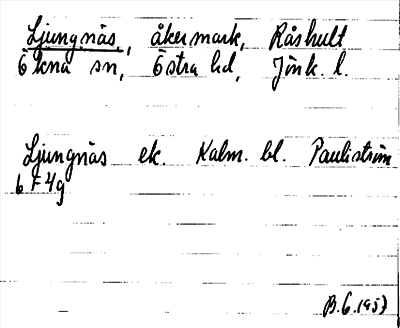 Ljungnäs, åkermark, Råshult
Ökna sn, Östra hd, Jönk. l.
Ljungnäs ek. Kalm. bl. Pauliström
6 F 4g
B.G. 1957